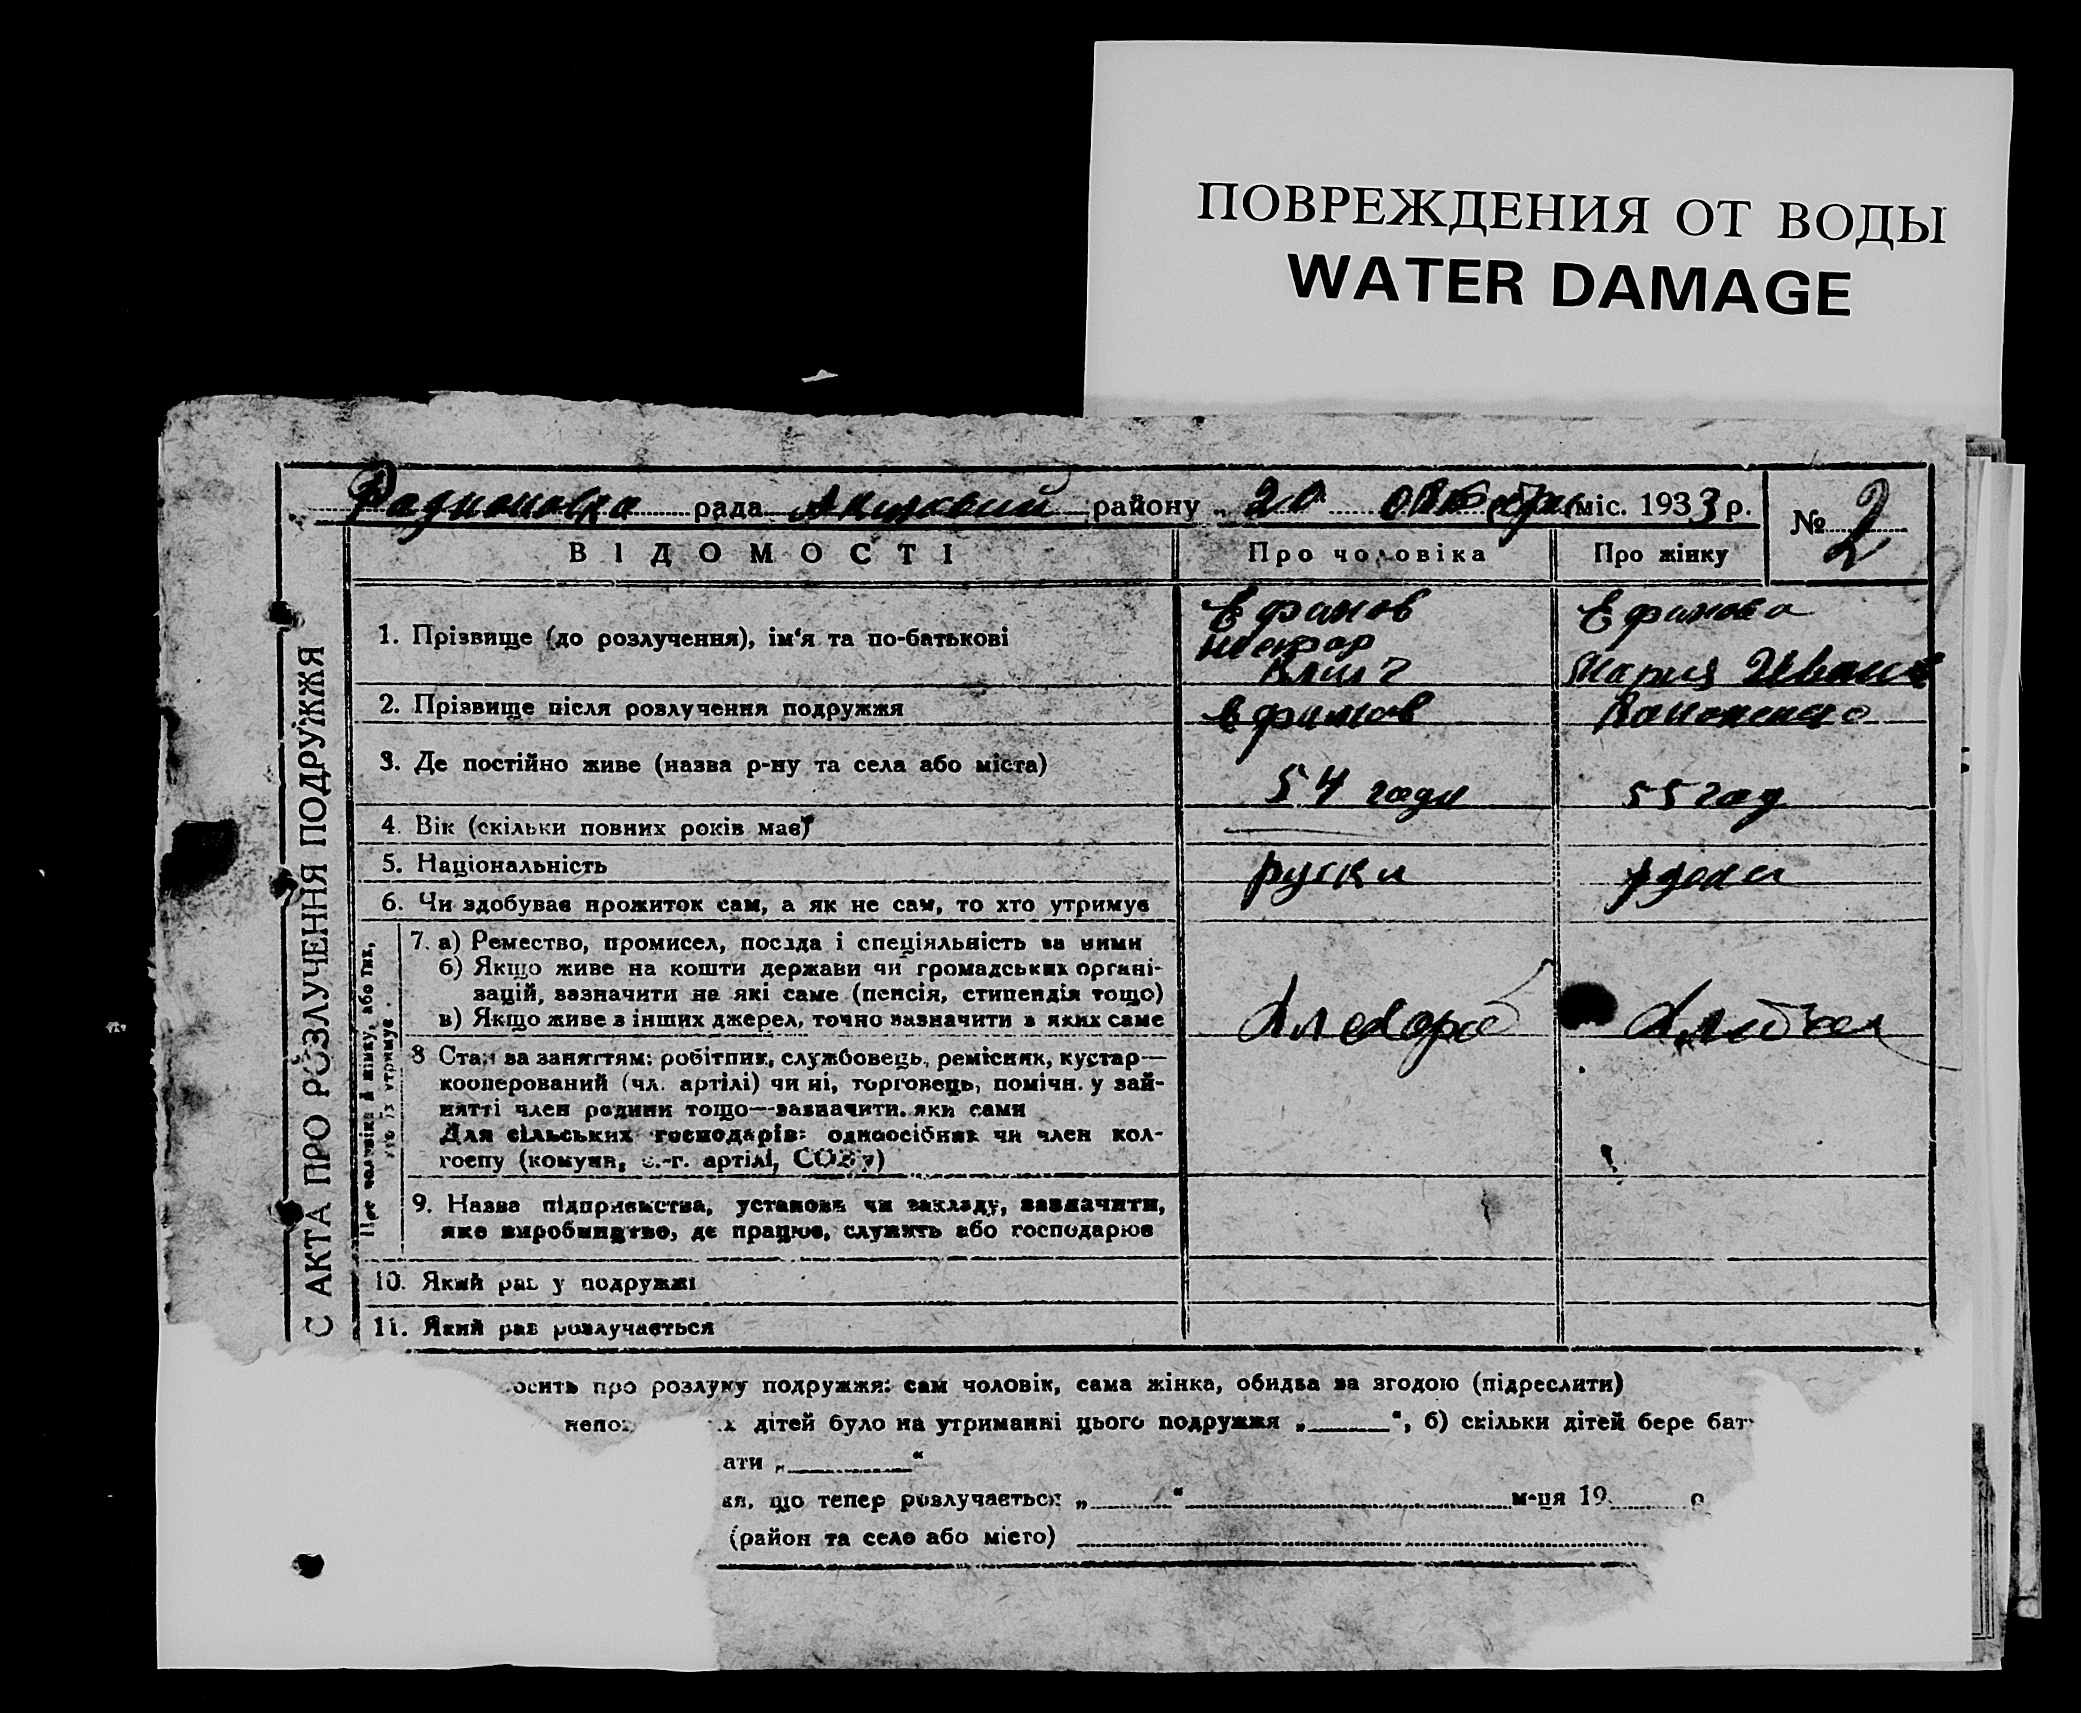 ПОВРЕЖДЕНИЯ ОТ ВОДЫ
WATER DAMAGE
Радионовка рада района району „ 20 октября міс. 1933 р. № 2
С АКТА ПРО РОЗЛУЧЕННЯ ПОДРУЖЖЯ
ВІДОМОСТІ Про чоловіка Про жінку
1. Прізвище (до розлучення), ім'я та по-батькові
Ефимов Ефимова
Нестор
Мария Иван
2. Прізвище після розлучення подружжя Ефимов
3. Де постійно живе (назва р-ну та села або міста)
54 годи 55 год
4. Вік (скільки повних років має)
5. Національність руски
6. Чи здобуває прожиток сам, а як не сам, то хто утримує
Про чоловіка й жінку, або тих,
хто їх утримує
7. а) Ремество, промисел, посада і спеціяльність за ними
б) Якщо живе на кошти держави чи громадських органі-
зацій, зазначити на які саме (пенсія, стипендія тощо)
в) Якщо живе з інших джерел, точно зазначити з яких саме
8 Стан за заняттям: робітник, службовець, ремісник, кустар—
кооперований (чл. артілі) чи ні, торговець, помічн. у зай-
нятті член родини тощо—зазначити, яки сами
Для сільських господарів: одноосібник чи член кол-
госпу (комуни, с.-г. артілі, СОЗу)
9. Назва підприємства, установи чи закладу, зазначити,
яке виробництво, де працює, служить або господарює
10. Який раз у подружжі
11. Який раз розлучається
осить про розлуку подружжя: сам чоловік, сама жінка, обидва за згодою (підреслити)
непо х дітей було на утриманні цього подружжя „ “, б) скільки дітей бере бат
ати „ “
ня, що тепер розлучається „ “ м-ця 19 р
(район та село або місто)